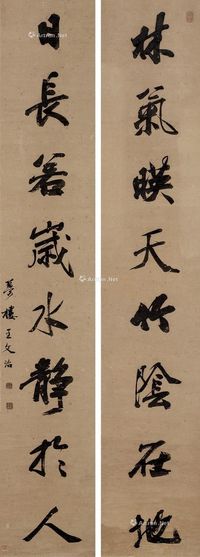 林氣映天竹陰在地
日長若歲水靜於人
夢樓王文治